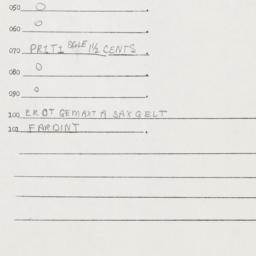 050 O
060 O
070 PRITI BGLE 1½ CENTS
080 O
090 O
100 EROT GEMAXT A SAX GELT
101 FARDINT